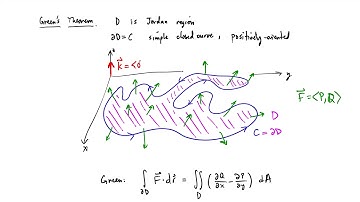 Green's Theorem: D is Jordan region
∂D=C simple closed curve, positively-oriented
z
k⃗ = <0
y
F⃗ = <P,Q>
D
C = ∂D
x
Green: ∫_∂D F⃗·dr⃗ = ∬_D (∂Q/∂x − ∂P/∂y) dA